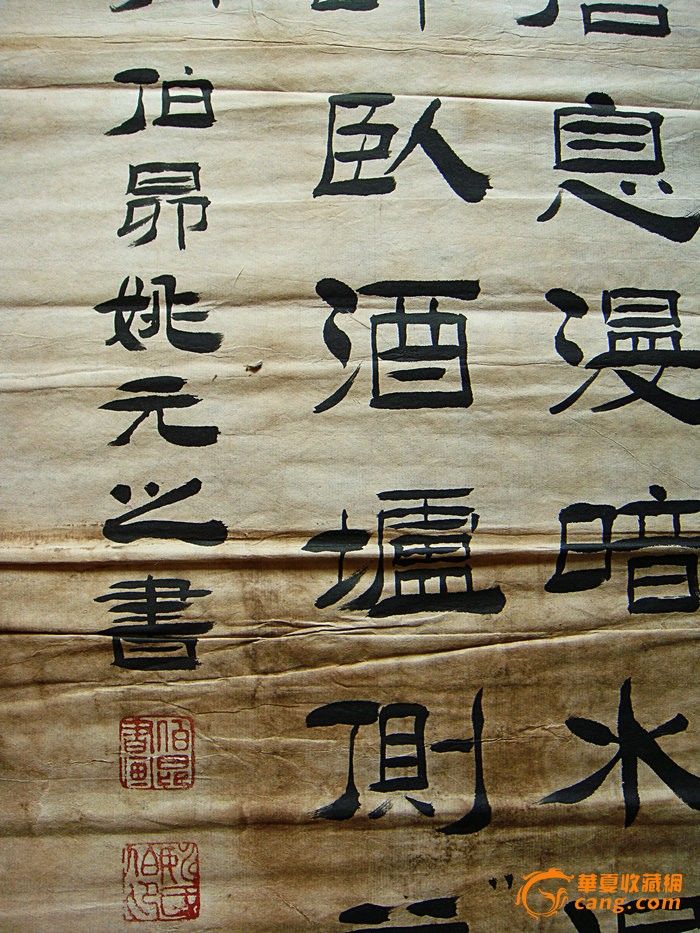 息漫暗水
臥酒壚側
伯昂姚元之書
伯昂書畫
華夏收藏網
cang.com